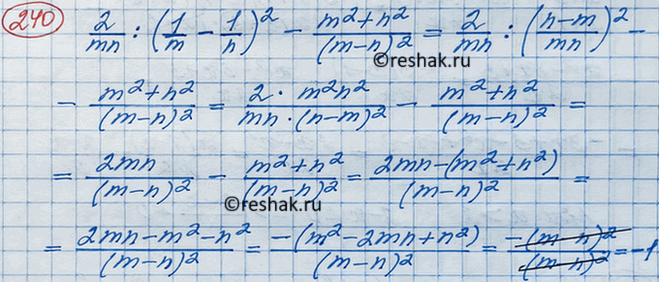 240 2/mn : (1/m - 1/n)² - (m²+n²)/(m-n)² = 2/mn : ((n-m)/mn)² -
©reshak.ru
- (m²+n²)/(m-n)² = (2 · m²n²)/(mn·(n-m)²) - (m²+n²)/(m-n)² =
= 2mn/(m-n)² - (m²+n²)/(m-n)² = (2mn-(m²+n²))/(m-n)² =
©reshak.ru
= (2mn-m²-n²)/(m-n)² = -(m²-2mn+n²)/(m-n)² = -(m-n)²/(m-n)² = -1